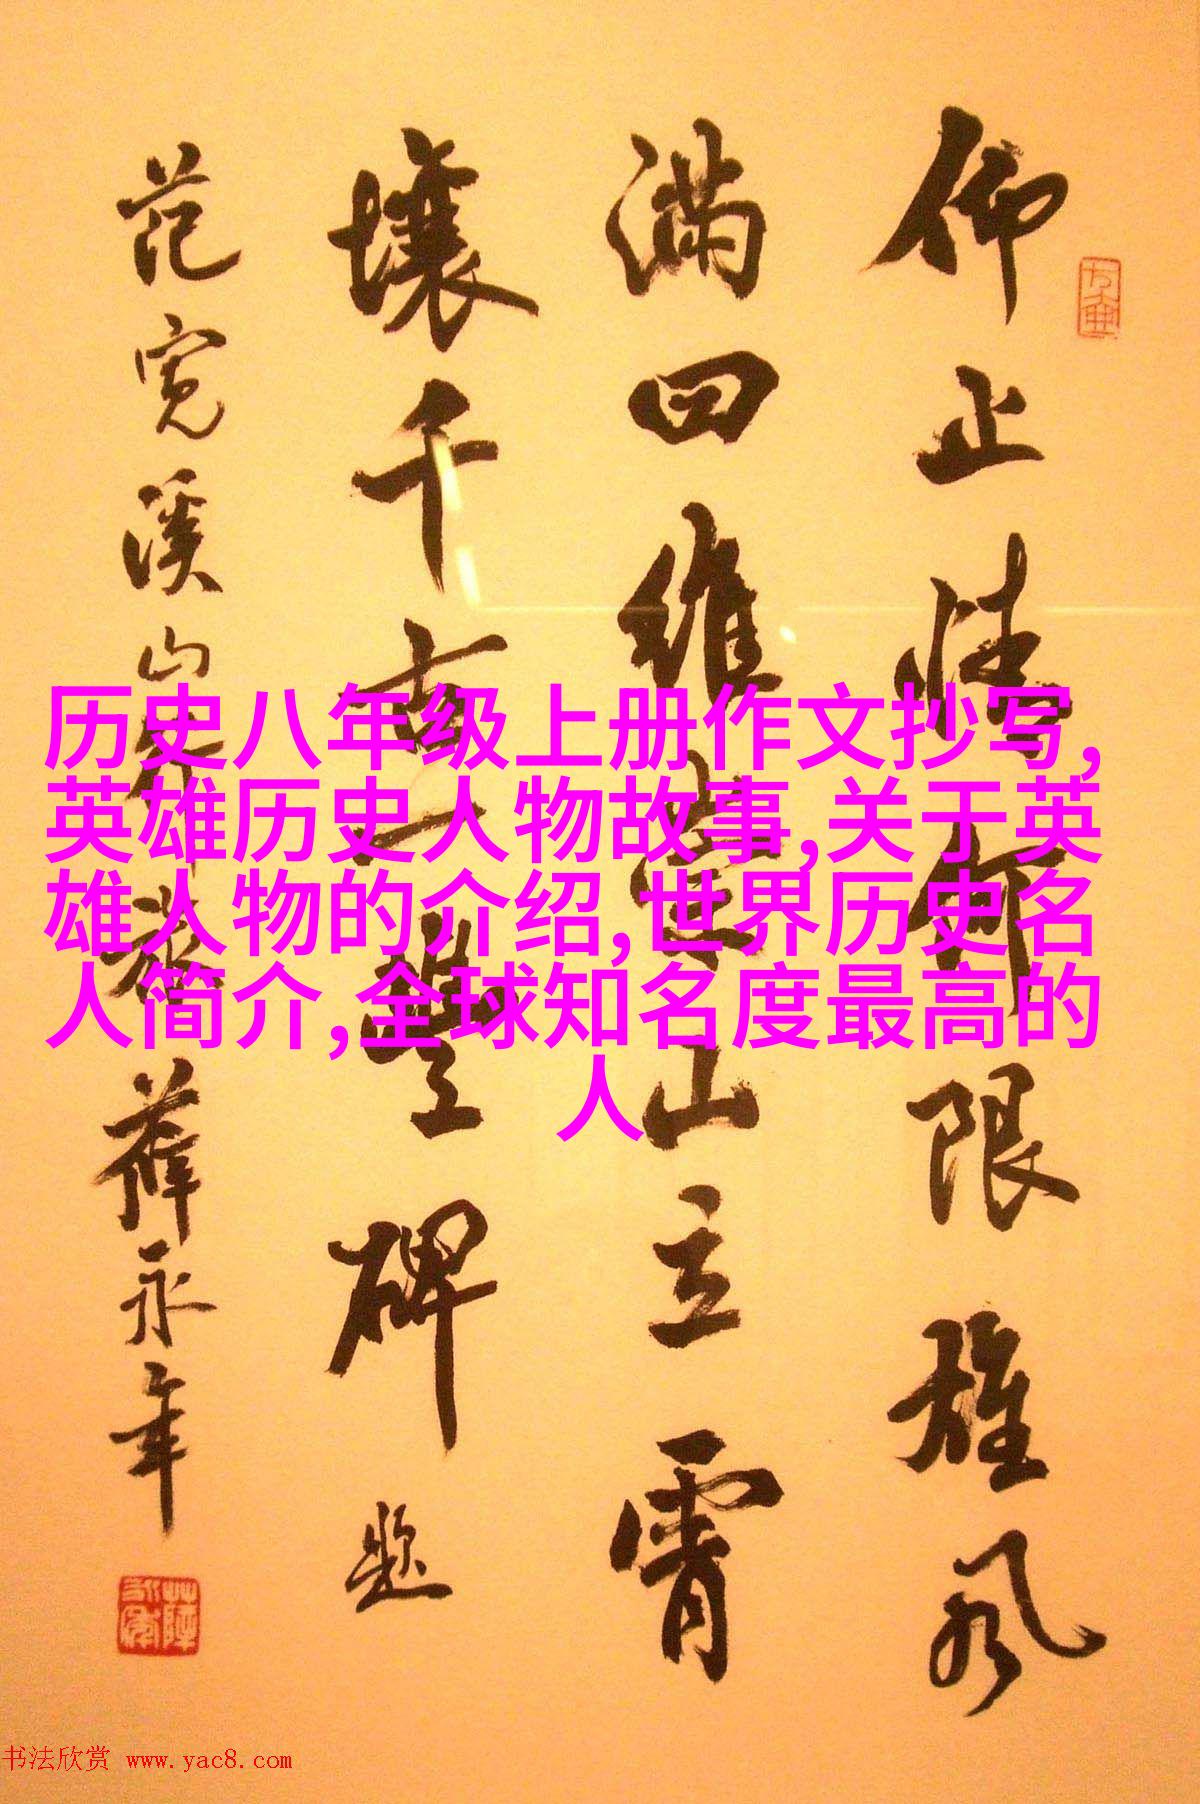 仰止情何限雄风
满四维崇山立霄
壤千古一豐碑题
范宽溪山行旅薛永年
历史八年级上册作文抄写,
英雄历史人物故事,关于英
雄人物的介绍,世界历史名
人简介,全球知名度最高的
人
书法欣赏 www.yac8.com